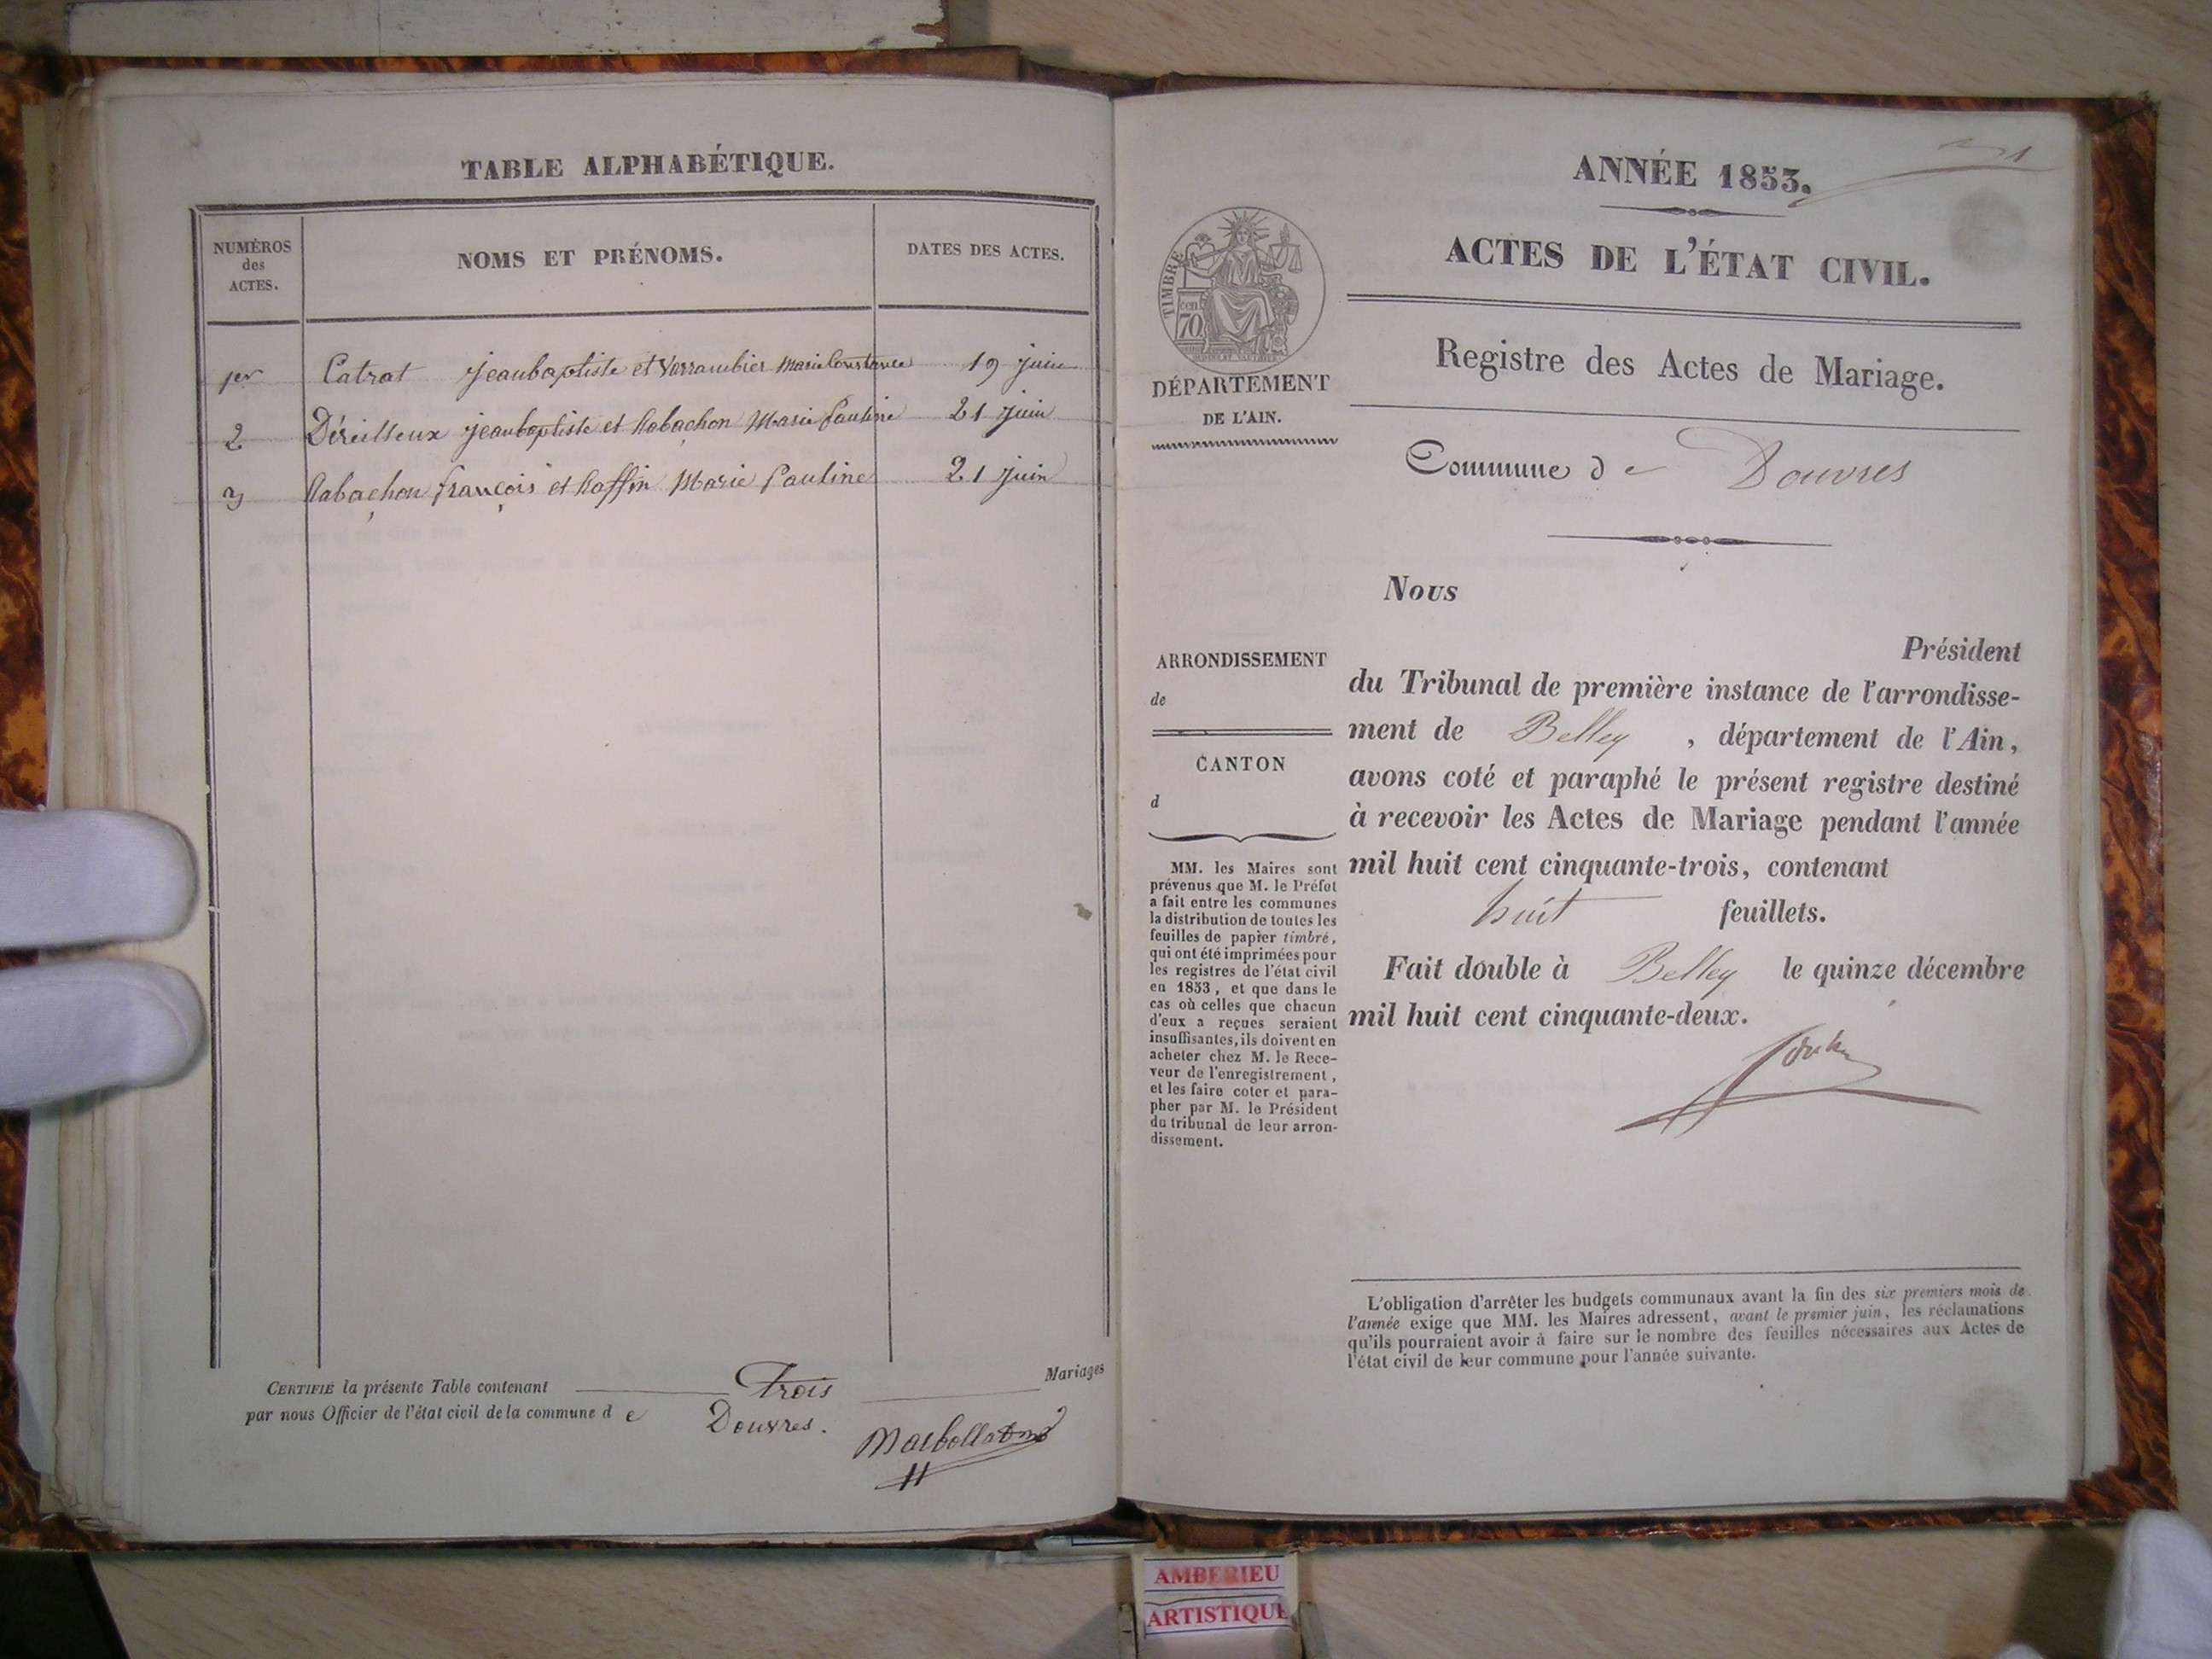 TABLE ALPHABÉTIQUE.
NUMÉROS
des
ACTES.
NOMS ET PRÉNOMS.
DATES DES ACTES.
1er Catrat jeanbaptiste et Varrambier Marie Constance 19 juin
2 Déreilleux jeanbaptiste et Rabachon Marie Pauline 21 juin
3 Rabachon françois et Raffin Marie Pauline 21 juin
CERTIFIÉ la présente Table contenant Trois Mariages
par nous Officier de l'état civil de la commune de Douvres.
ANNÉE 1853.
ACTES DE L'ÉTAT CIVIL.
TIMBRE
cen
70
DÉPARTEMENT
DE L'AIN.
Registre des Actes de Mariage.
Commune de Douvres
Nous
Président
du Tribunal de première instance de l'arrondisse-
ment de Belley , département de l'Ain,
avons coté et paraphé le présent registre destiné
à recevoir les Actes de Mariage pendant l'année
mil huit cent cinquante-trois, contenant
huit feuillets.
Fait double à Belley le quinze décembre
mil huit cent cinquante-deux.
ARRONDISSEMENT
de
CANTON
d
MM. les Maires sont
prévenus que M. le Préfet
a fait entre les communes
la distribution de toutes les
feuilles de papier timbré,
qui ont été imprimées pour
les registres de l'état civil
en 1853, et que dans le
cas où celles que chacun
d'eux a reçues seraient
insuffisantes, ils doivent en
acheter chez M. le Rece-
veur de l'enregistrement,
et les faire coter et para-
pher par M. le Président
du tribunal de leur arron-
dissement.
L'obligation d'arrêter les budgets communaux avant la fin des six premiers mois de
l'année exige que MM. les Maires adressent, avant le premier juin, les réclamations
qu'ils pourraient avoir à faire sur le nombre des feuilles nécessaires aux Actes de
l'état civil de leur commune pour l'année suivante.
AMBERIEU
ARTISTIQUE